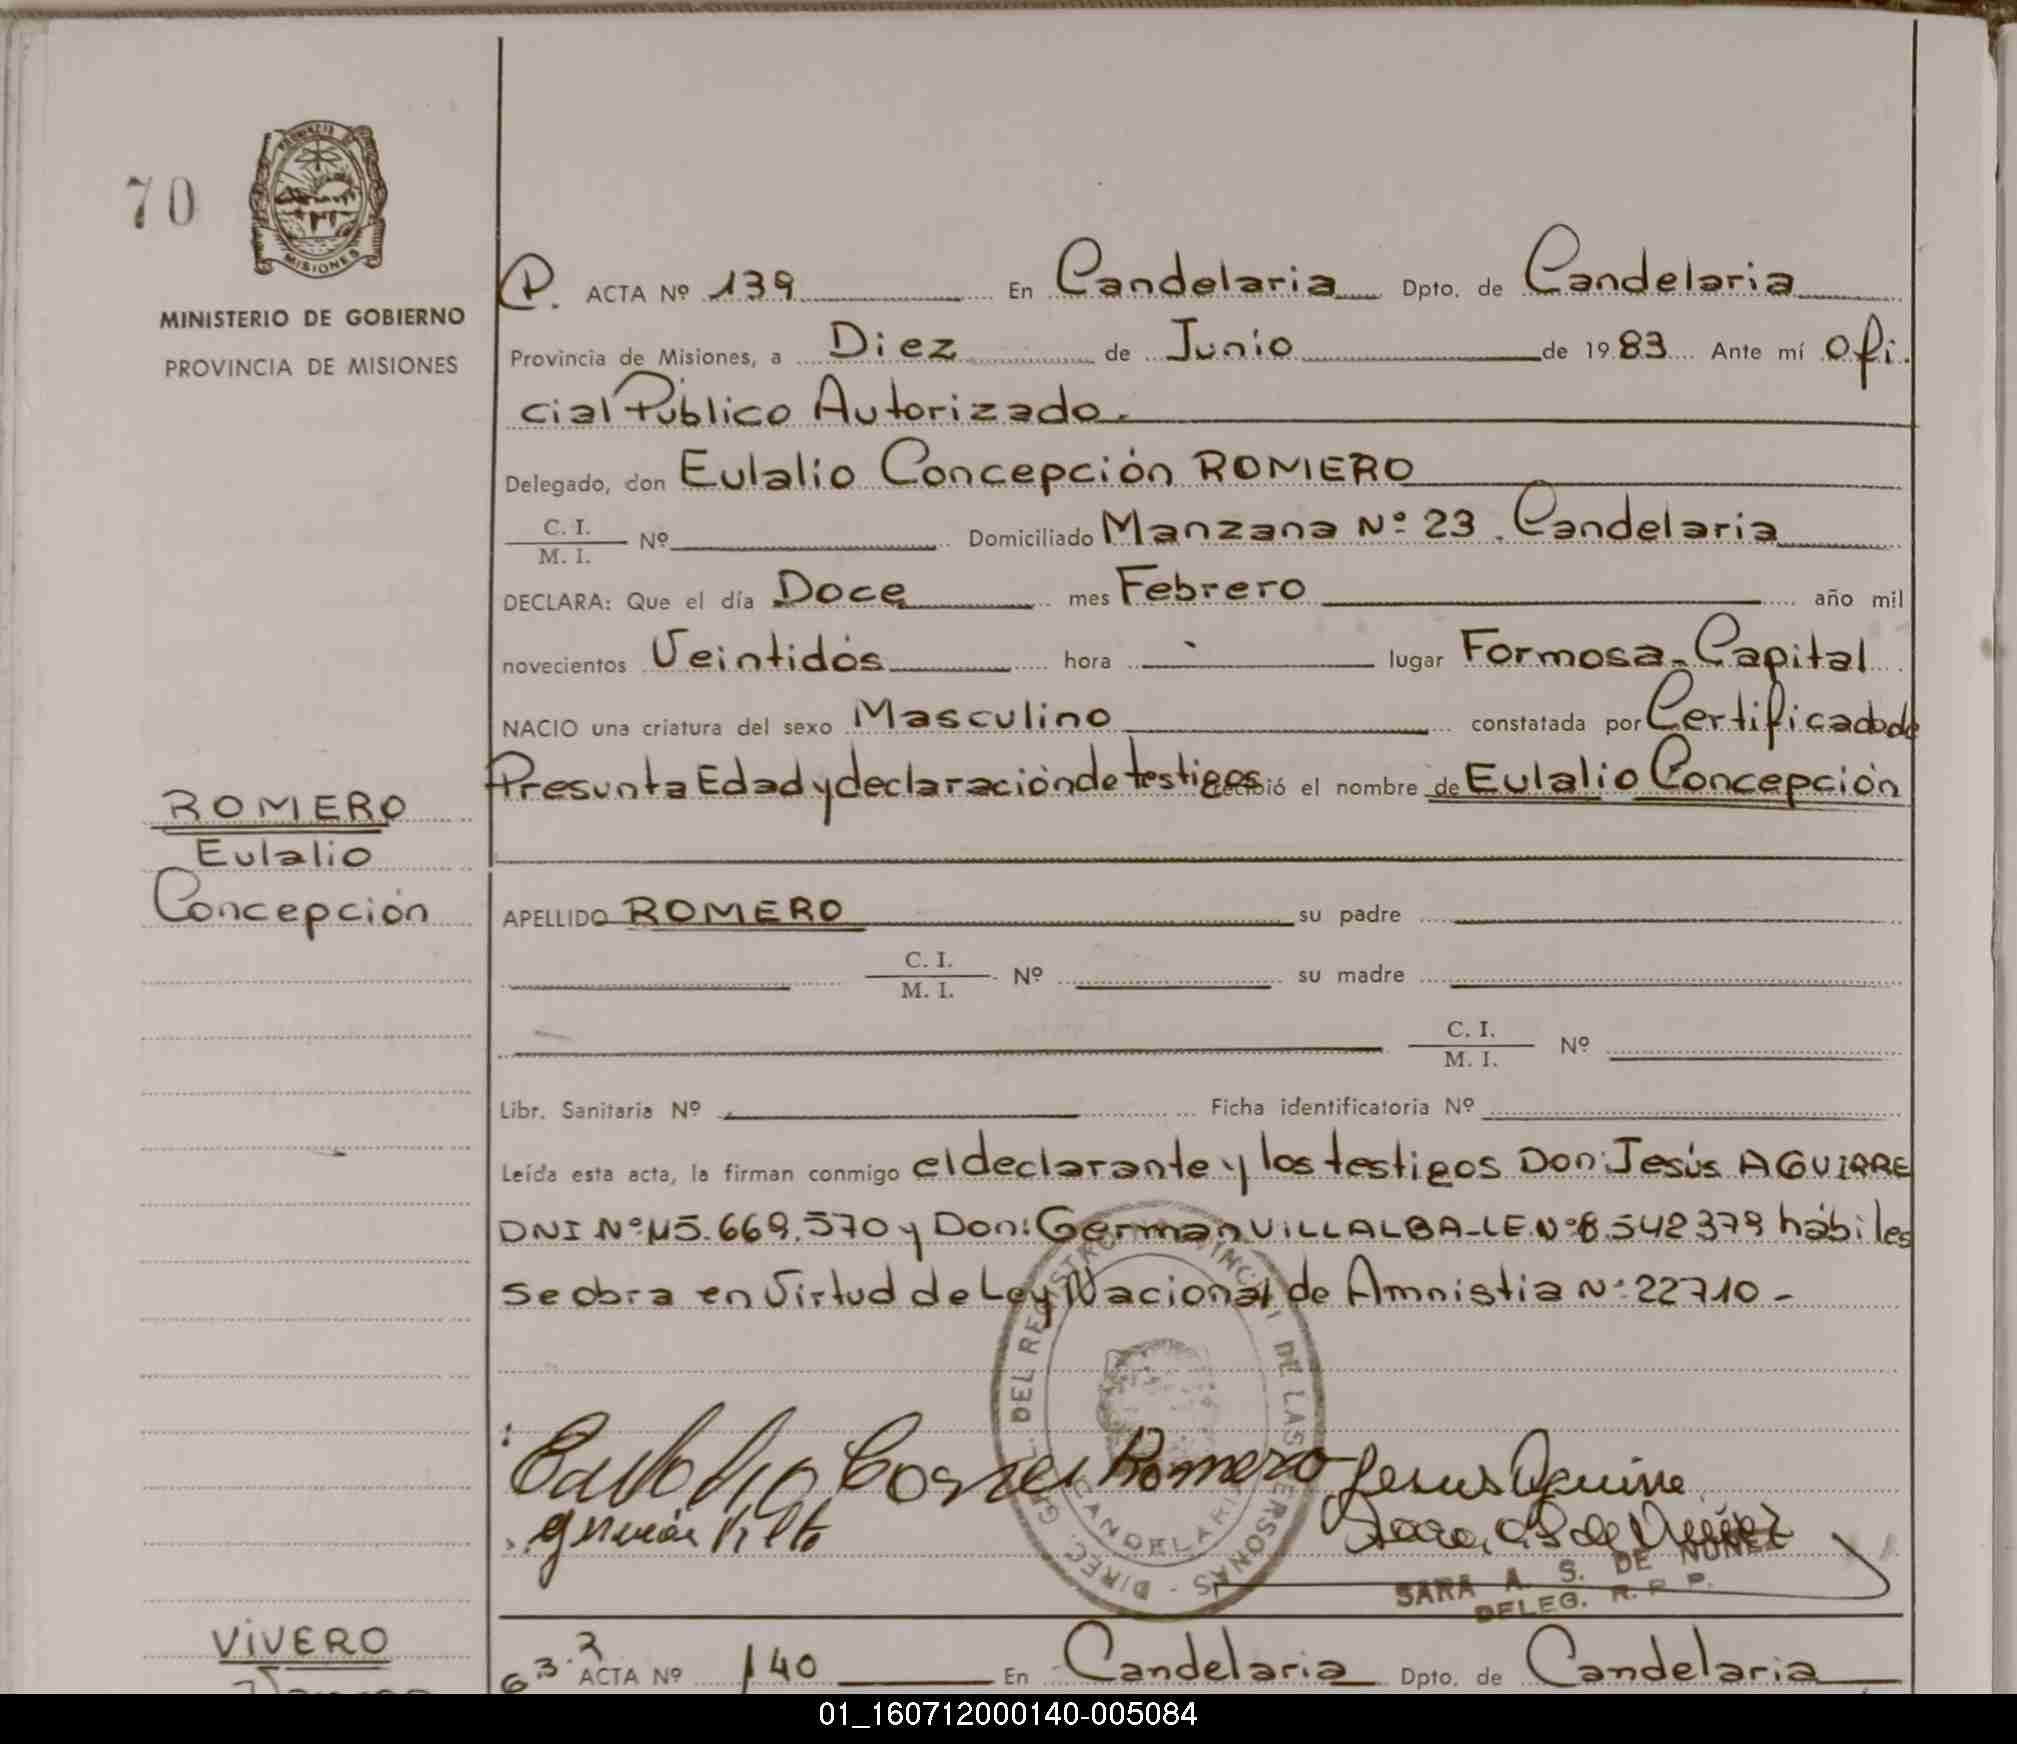 70
PROVINCIA DE
MISIONES
MINISTERIO DE GOBIERNO
PROVINCIA DE MISIONES
P. ACTA Nº 139 En Candelaria Dpto. de Candelaria
Provincia de Misiones, a Diez de Junio de 1983 Ante mí Ofi.
cial Público Autorizado.
Delegado, don Eulalio Concepción ROMERO
C. I.
M. I. Nº Domiciliado Manzana Nº 23. Candelaria
DECLARA: Que el día Doce mes Febrero año mil
novecientos Veintidós hora lugar Formosa-Capital
NACIO una criatura del sexo Masculino constatada por Certificado de
Presunta Edad y declaración de testigos recibió el nombre de Eulalio Concepción
ROMERO
Eulalio
Concepción
APELLIDO ROMERO su padre
C. I.
M. I. Nº su madre
C. I.
M. I. Nº
Libr. Sanitaria Nº Ficha identificatoria Nº
Leída esta acta, la firman conmigo el declarante y los testigos Don: Jesús AGUIRRE
DNI Nº M5.669.570 y Don: German VILLALBA-LE.Nº 8.542379 hábiles
se obra en Virtud de Ley Nacional de Amnistia Nº 22710-
DIREC. GRAL. DEL REGISTRO PROVINCIAL DE LAS PERSONAS -
CANDELARIA
Romero Jesus Aguirre
German
SARA A. S. DE NUÑEZ
DELEG. R. P. P.
VIVERO
ACTA Nº 140 En Candelaria Dpto. de Candelaria
01_160712000140-005084